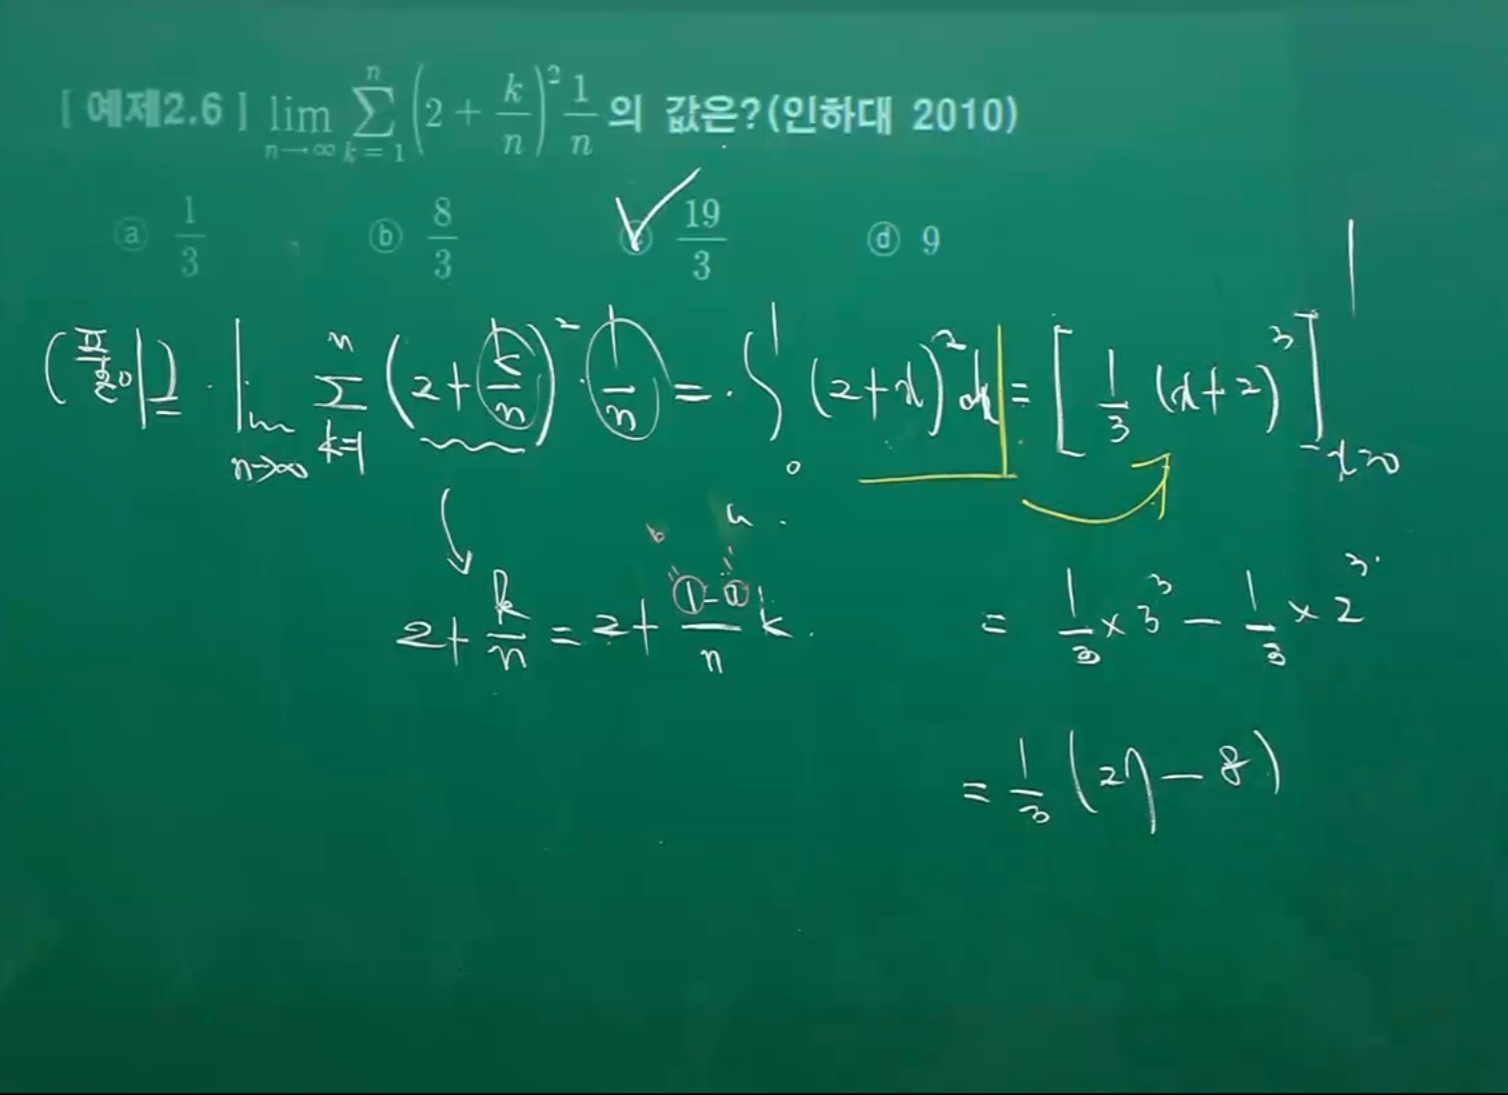 [ 예제2.6 ] lim_{n→∞} ∑_{k=1}^{n} (2 + k/n)² 1/n 의 값은?(인하대 2010)
ⓐ 1/3 ⓑ 8/3 ⓒ 19/3 ⓓ 9
(풀이1) lim_{n→∞} ∑_{k=1}^{n} (2 + k/n)² · 1/n = ∫_0^1 (2+x)² dx = [ 1/3 (x+2)³ ]_{x=0}^{1}
b a
2 + k/n = 2 + (1-0)/n k.
= 1/3 × 3³ − 1/3 × 2³
= 1/3 (27 − 8)